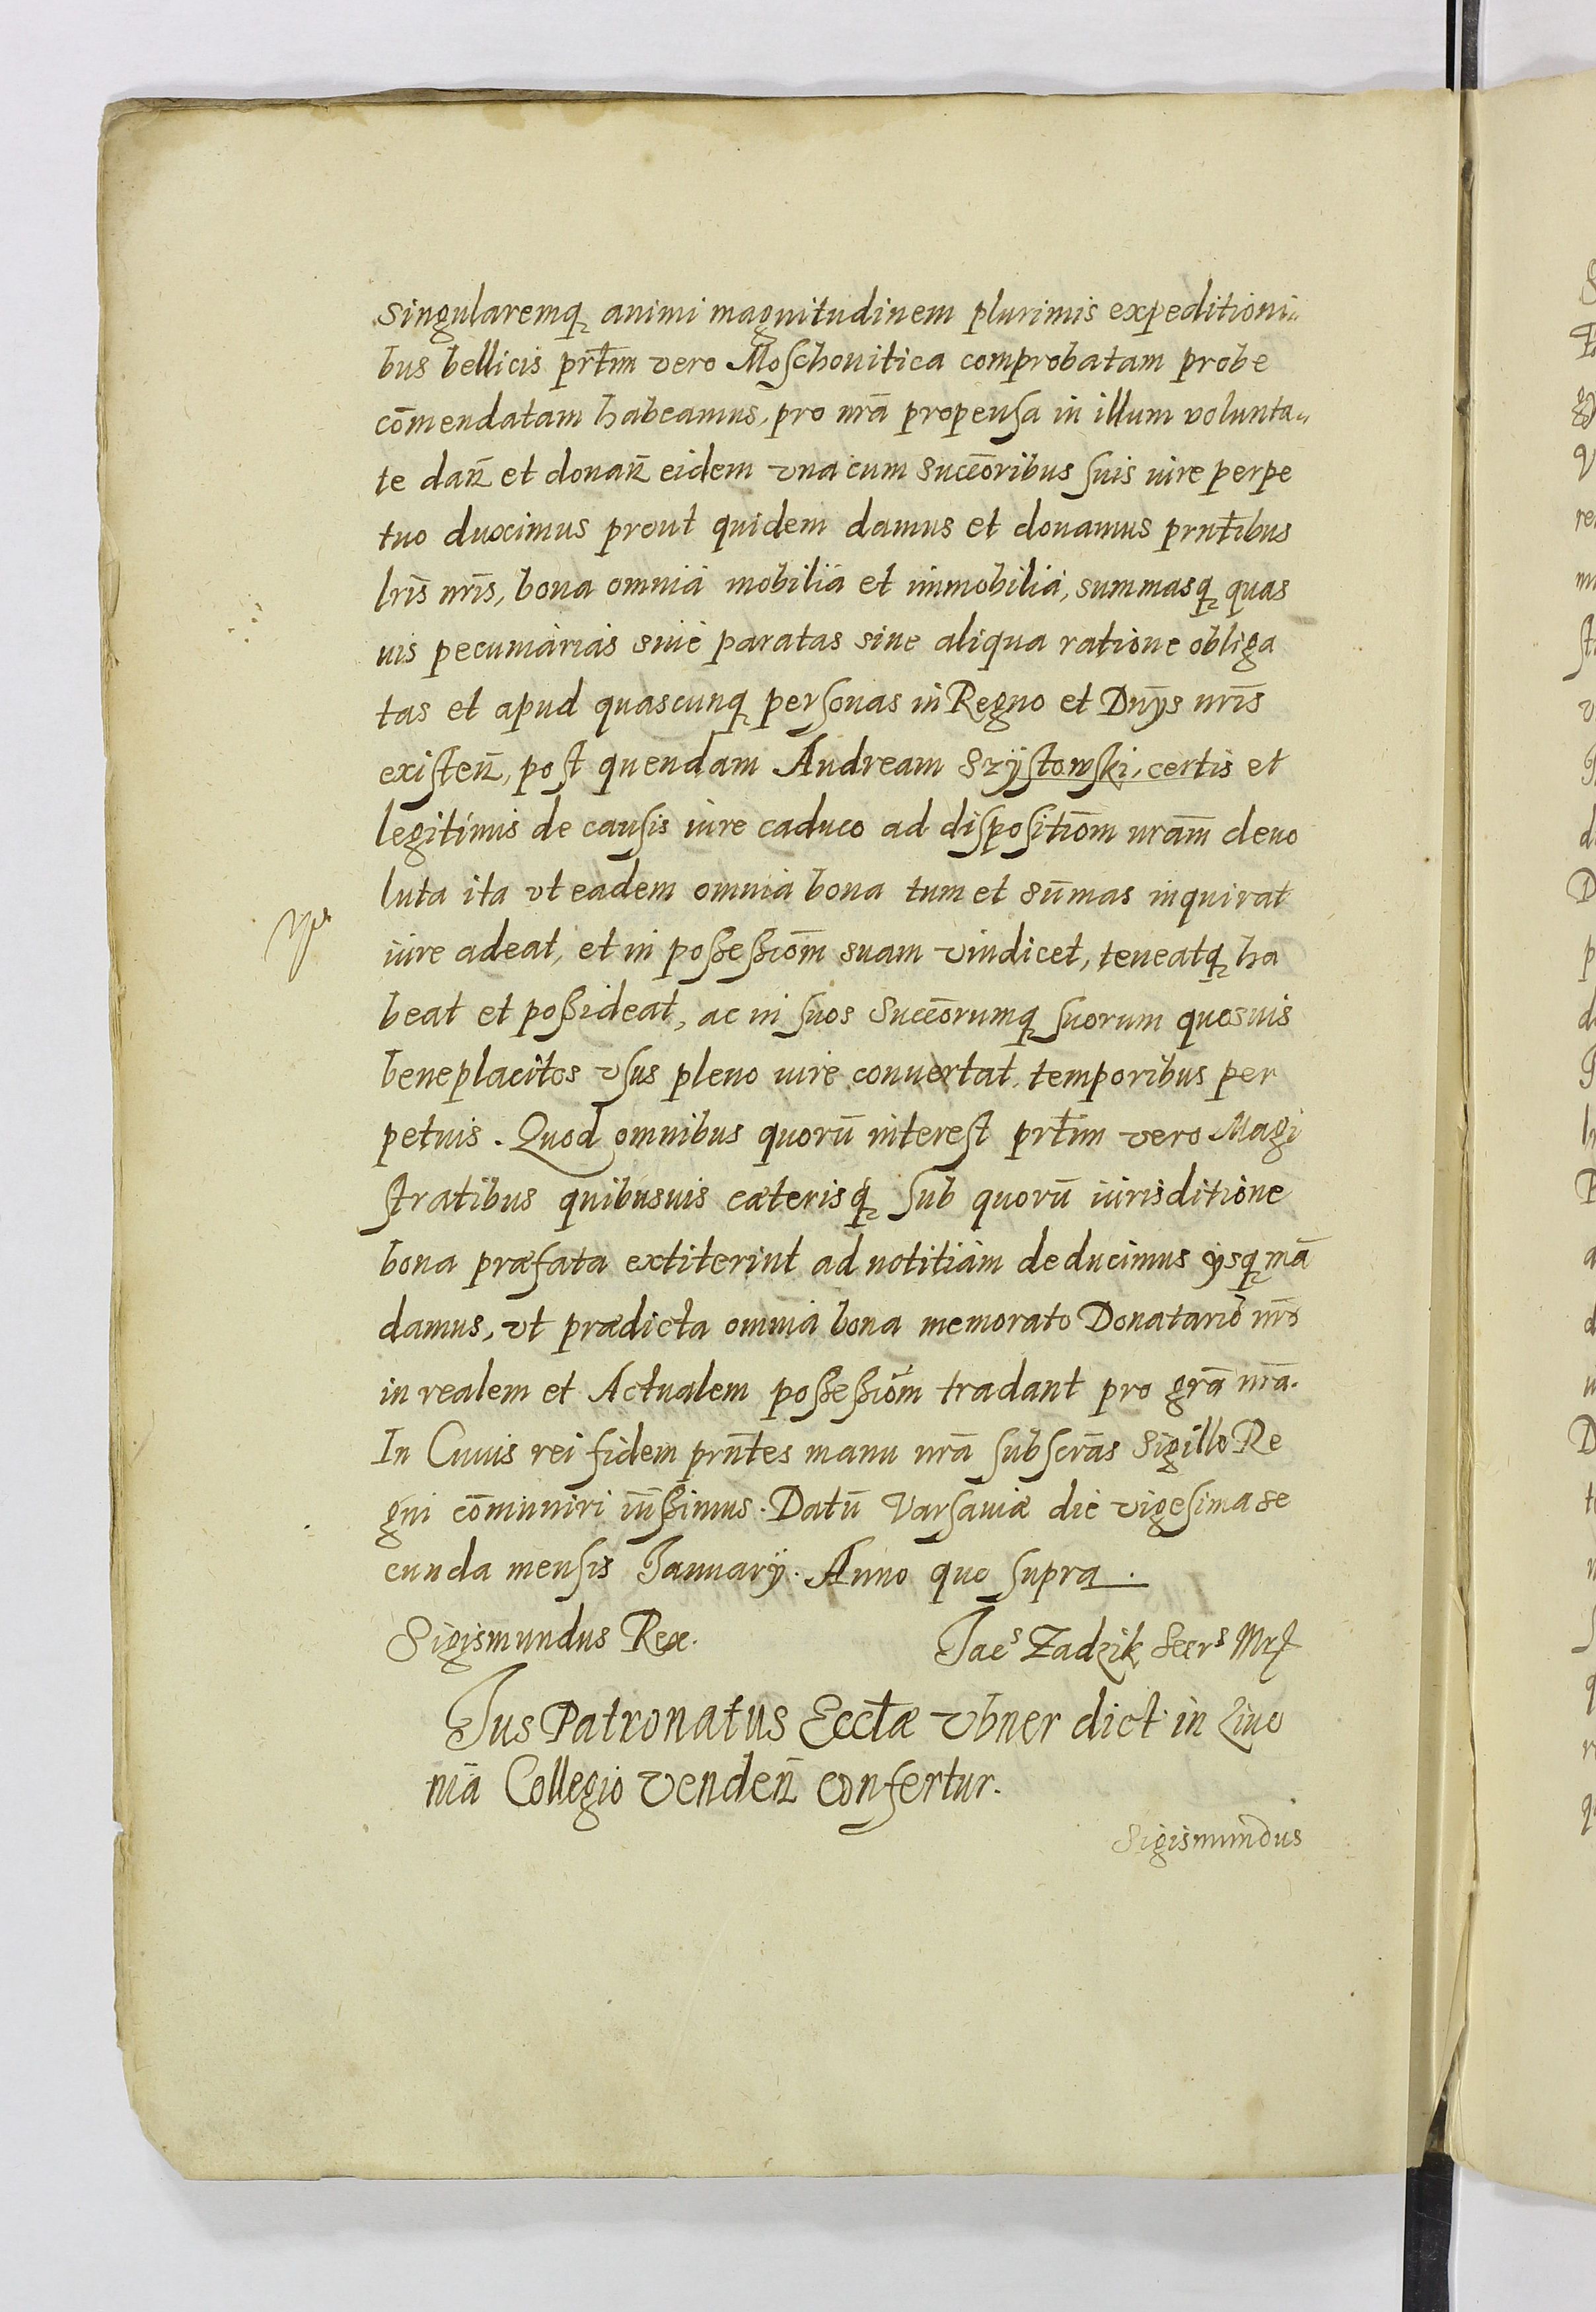 singularemq animi magnitudinem plurimis expeditioni„
bus bellicis prt̄im vero Moschouitica comprobatam probe
com̄endatam habeamus, pro nr̄a propensa in illum volunta„
te dan̄ et donan̄ eidem vna cum Succēoribus suis iure perpe
tuo duximus prout quidem damus et donamus prnt̄ibus
lrīs nrīs, bona omnia mobilia et immobilia, summasq quas
uis pecuniarias siue paratas siue aliqua ratione obliga
tas et apud quascunq personas in Regno et Dnȳs nrīs
existen̄, post quendam Andream Szÿstowski, certis et
legitimis de causis iure caduco ad dispositiōm nram̄ deuo
luta ita vt eadem omnia bona tum et sum̄as inquirat
iure adeat, et in poßeßiōm suam vindicet, teneatq ha
beat et poßideat, ac in suos Succēorumq suorum quosuis
beneplacitos vsus pleno iure conuertat. temporibus per
petuis. Quod omnibus quorū interest prt̄im vero Magi
stratibus quibusuis cæterisq sub quorū iurisditione
bona præfata extiterint ad notitiam deducimus ÿsq mā
damus, vt prædicta omnia bona memorato Donatario nrō
in realem et Actualem poßeßiōm tradant pro grā nrā.
In Cuius rei fidem prn̄tes manu nrā subscrās Sigillo Re
gni com̄uniri iußimus. Datū Varsauiæ die vigesima se
cunda mensis Januarÿ. Anno quo supra.
Sigismundus Rex.
Jacs Zadzik Secrs
Jus Patronatus Ecctæ vbner dict in Liuo
niā Collegio Venden̄ confertur.
Sigismundus